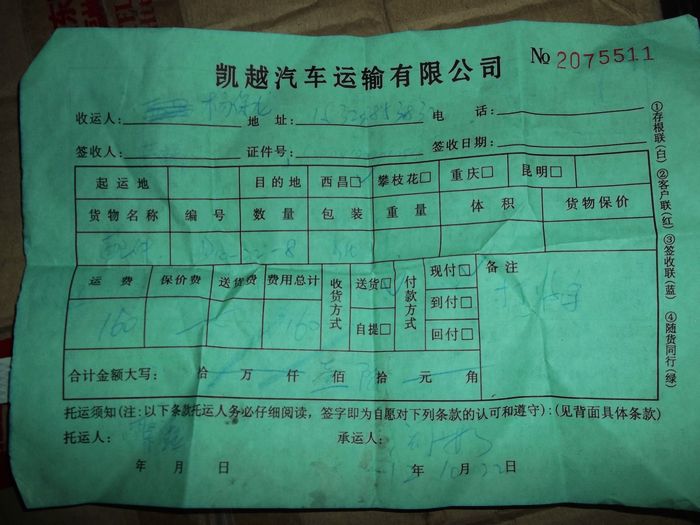 凯越汽车运输有限公司 No 2075511
收运人: 地 址: 电 话:
签收人: 证件号: 签收日期:
起运地 目的地 西昌□ 攀枝花□ 重庆□ 昆明□
货物名称 编号 数量 包装 重量 体积 货物保价
配件
运费 保价费 送货费 费用总计 收货方式 送货□ 付款方式 现付□ 备注
160 160 到付□
自提□ 回付□
合计金额大写: 拾 万 仟 壹 佰 陆 拾 元 角
托运须知(注:以下条款托运人务必仔细阅读,签字即为自愿对下列条款的认可和遵守):(见背面具体条款)
托运人: 承运人:
年 月 日 年 月 日
①存根联(白) ②客户联(红) ③签收联(蓝) ④随货同行(绿)